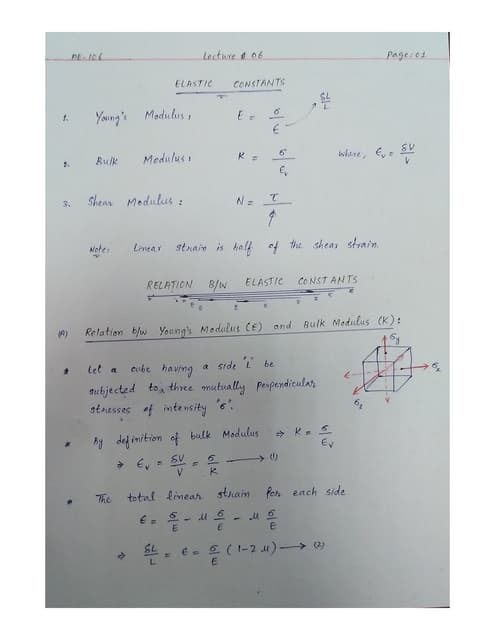 ME-106 Lecture # 06 Page: 01
ELASTIC CONSTANTS
1. Young's Modulus, E = σ/ϵ δL/L
2. Bulk Modulus: K = σ/ϵv where, ϵv = δV/V
3. Shear Modulus: N = τ/ϕ
Note: Linear strain is half of the shear strain.
RELATION B/W ELASTIC CONSTANTS
(A) Relation b/w Young's Modulus (E) and Bulk Modulus (K):
* Let a cube having a side "L" be
subjected to a three mutually perpendicular
stresses of intensity "σ".
σy
σx
σz
* By definition of bulk Modulus ⇒ K = σ/ϵv
⇒ ϵv = δV/V = σ/K → (1)
* The total linear strain for each side
ϵ = σ/E - μ σ/E - μ σ/E
⇒ δL/L = ϵ = σ/E (1-2μ) → (2)